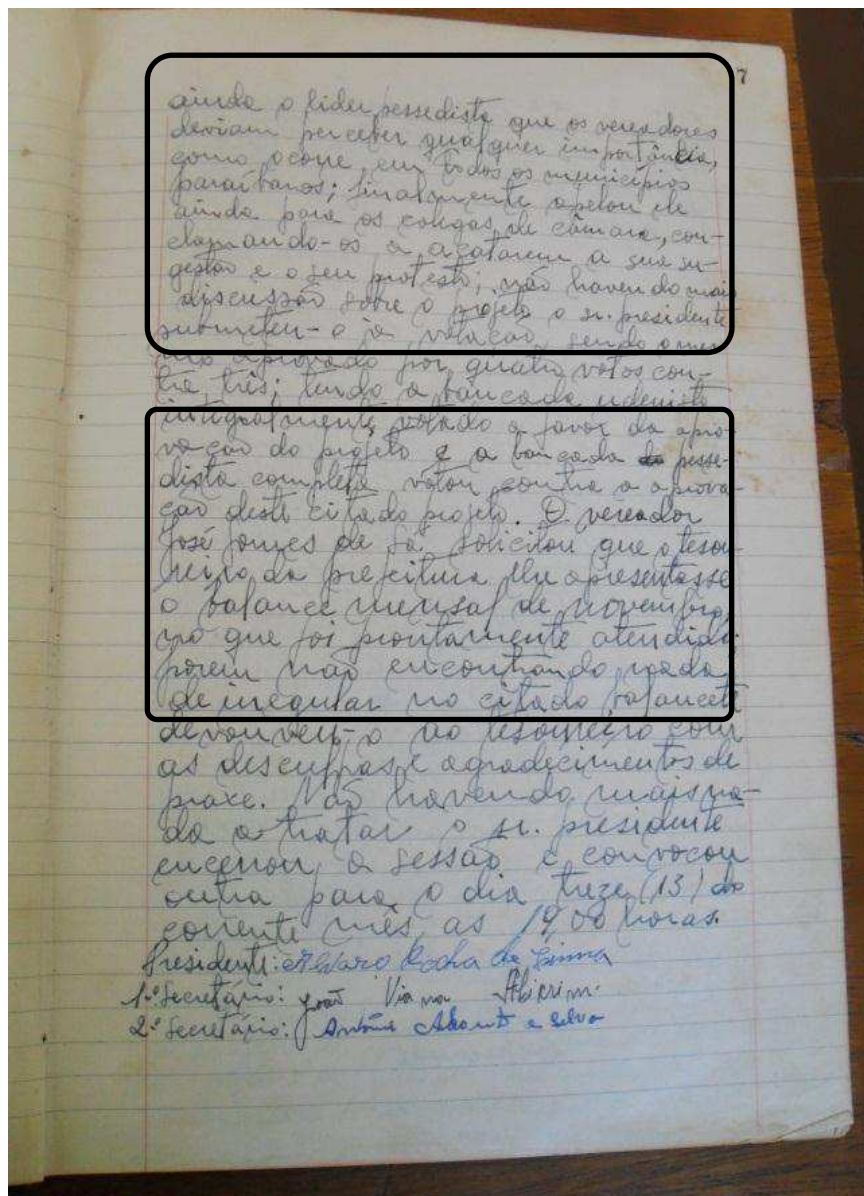 7
ainda o lider pessedista que os vereadores
deviam perceber qualquer importância,
como ocorre em todos os municípios
paraibanos; finalmente apelou ele
ainda para os colegas de câmara, con-
clamando-os a acatarem a sua su-
gestão e o seu protesto; não havendo mais
discussão sôbre o projeto o sr. presidente
submeteu-o já votação, sendo o mes-
mo aprovado por quatro votos con-
tra três; tendo a bancada udenista
integralmente votado a favor da apro-
vação do projeto e a bancada pesse-
dista completa votou contra a aprova-
ção deste citado projeto. O vereador
José Gomes de Sá solicitou que o tesou-
reiro da prefeitura lhe apresentasse
o balance mensal de novembro,
no que foi prontamente atendido
porem não encontrando nada
de irregular no citado balancete
devouveu-o ao tesoureiro com
as desculpas e agradecimentos de
praxe. Não havendo mais na-
da a tratar o sr. presidente
encerrou a sessão e convocou
outra para o dia treze (13) do
corrente mês as 19,00 horas.
Presidente: Alvaro Rocha de
1º Secretário: João Viana
2º Secretário: Antônio e Silva